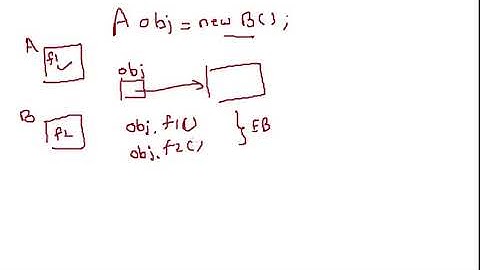 A obj = new B();
A
f1
obj
B
f2
obj.f1()
obj.f2()
EB